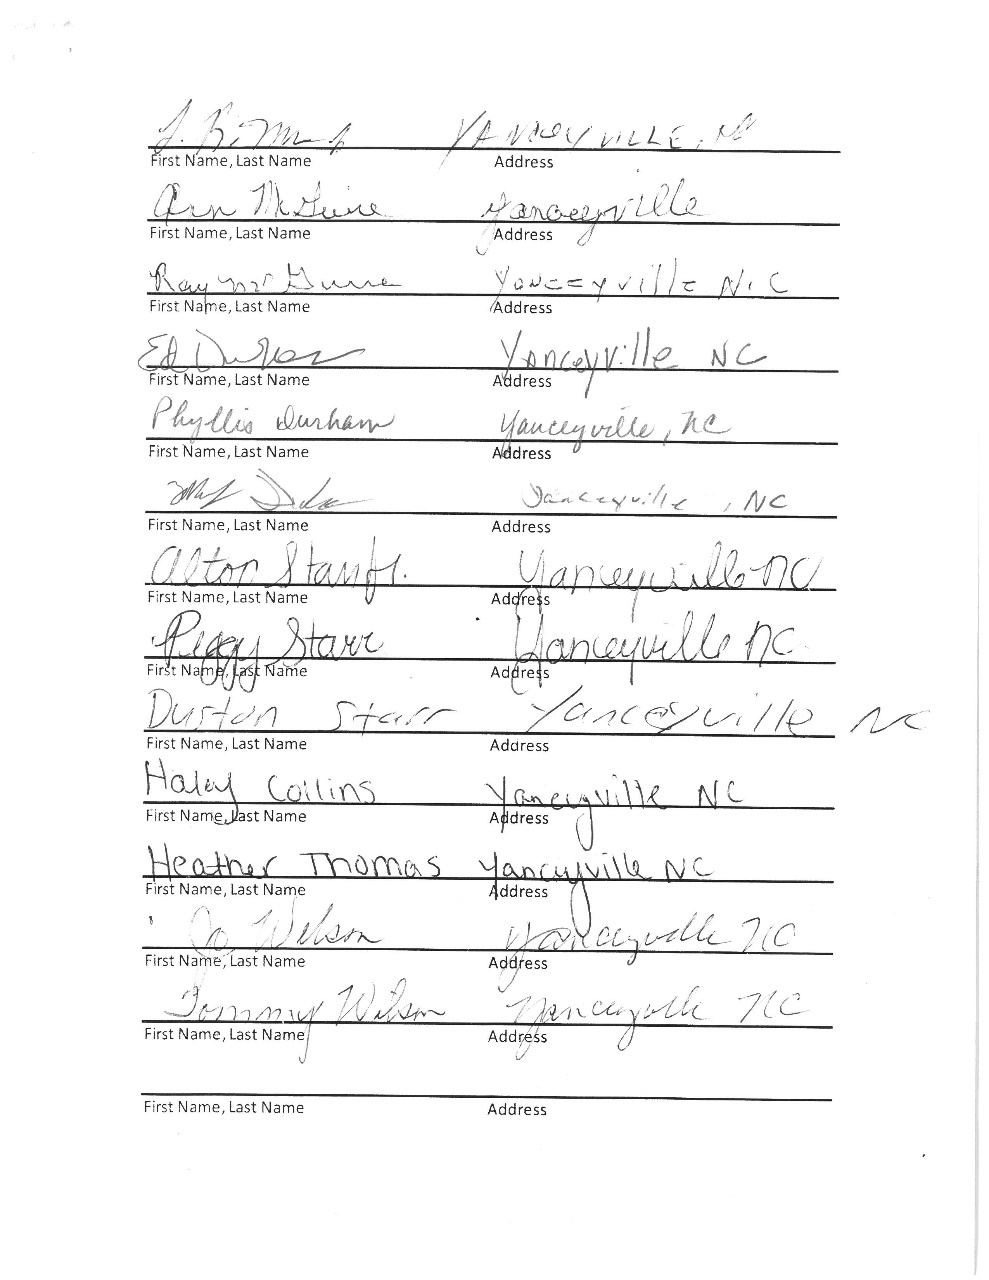 YANCEYVILLE, NC
First Name, Last Name Address
Ann McGuire Yanceyville
First Name, Last Name Address
Ray McGuire Yanceyville N.C
First Name, Last Name Address
Ed Yanceyville NC
First Name, Last Name Address
Phyllis Durham Yanceyville, NC
First Name, Last Name Address
Yanceyville, NC
First Name, Last Name Address
Alton Starr Jr. Yanceyville NC
First Name, Last Name Address
Peggy Starr Yanceyville NC
First Name, Last Name Address
Duston Starr Yanceyville NC
First Name, Last Name Address
Haley Collins Yanceyville NC
First Name, Last Name Address
Heather Thomas Yancyville NC
First Name, Last Name Address
Jo Wilson Yanceyville NC
First Name, Last Name Address
Tommy Wilson Yanceyville NC
First Name, Last Name Address
First Name, Last Name Address